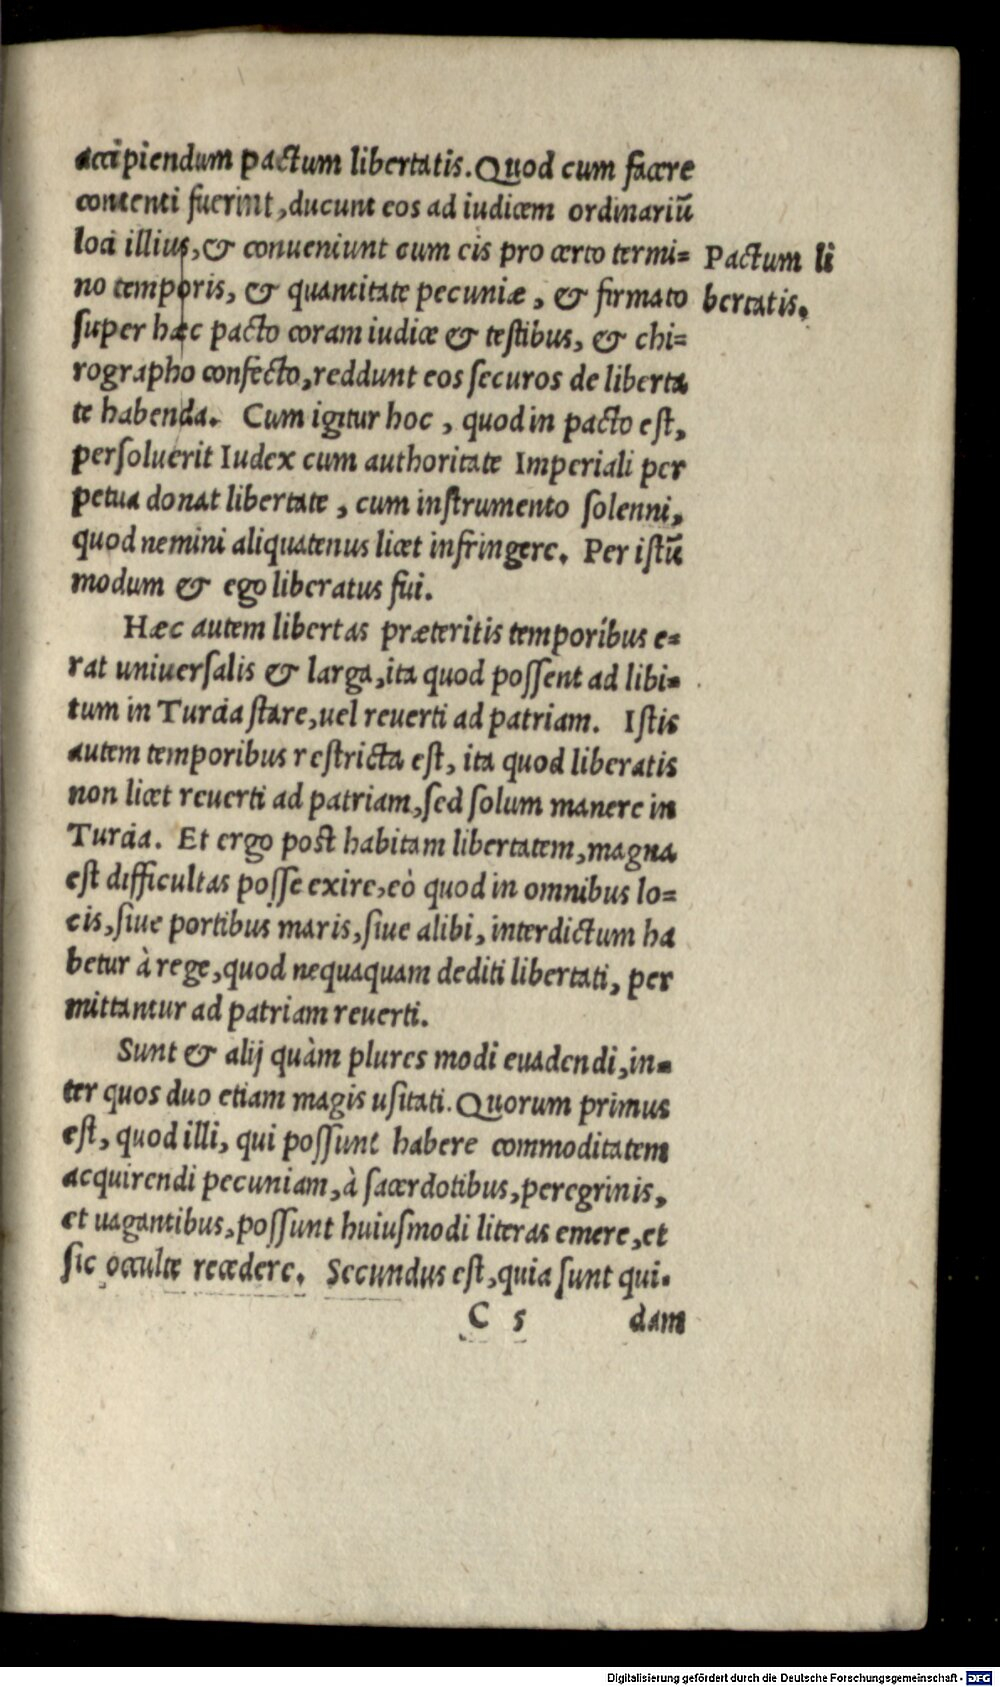 accipiendum pactum libertatis. Quod cum facere
contenti fuerint, ducunt eos ad iudicem ordinariũ
loci illius, & conueniunt cum eis pro certo termi=
no temporis, & quantitate pecuniæ, & firmato
super hæc pacto coram iudice & testibus, & chi=
rographo confecto, reddunt eos securos de liberta
te habenda. Cum igitur hoc, quod in pacto est,
persoluerit Iudex cum authoritate Imperiali per
petua donat libertate, cum instrumento solenni,
quod nemini aliquatenus licet infringere. Per istũ
modum & ego liberatus fui.
Pactum li
bertatis.
Hæc autem libertas præteritis temporibus e=
rat uniuersalis & larga, ita quod possent ad libi=
tum in Turcia stare, uel reuerti ad patriam. Istis
autem temporibus restricta est, ita quod liberatis
non licet reuerti ad patriam, sed solum manere in
Turcia. Et ergo post habitam libertatem, magna
est difficultas posse exire, eò quod in omnibus lo=
cis, siue portibus maris, siue alibi, interdictum ha
betur à rege, quod nequaquam dediti libertati, per
mittantur ad patriam reuerti.
Sunt & alij quàm plures modi euadendi, in=
ter quos duo etiam magis usitati. Quorum primus
est, quod illi, qui possunt habere commoditatem
acquirendi pecuniam, à sacerdotibus, peregrinis,
et uagantibus, possunt huiusmodi literas emere, et
sic occulte recedere. Secundus est, quia sunt qui=
C 5 dam
Digitalisierung gefördert durch die Deutsche Forschungsgemeinschaft - DFG